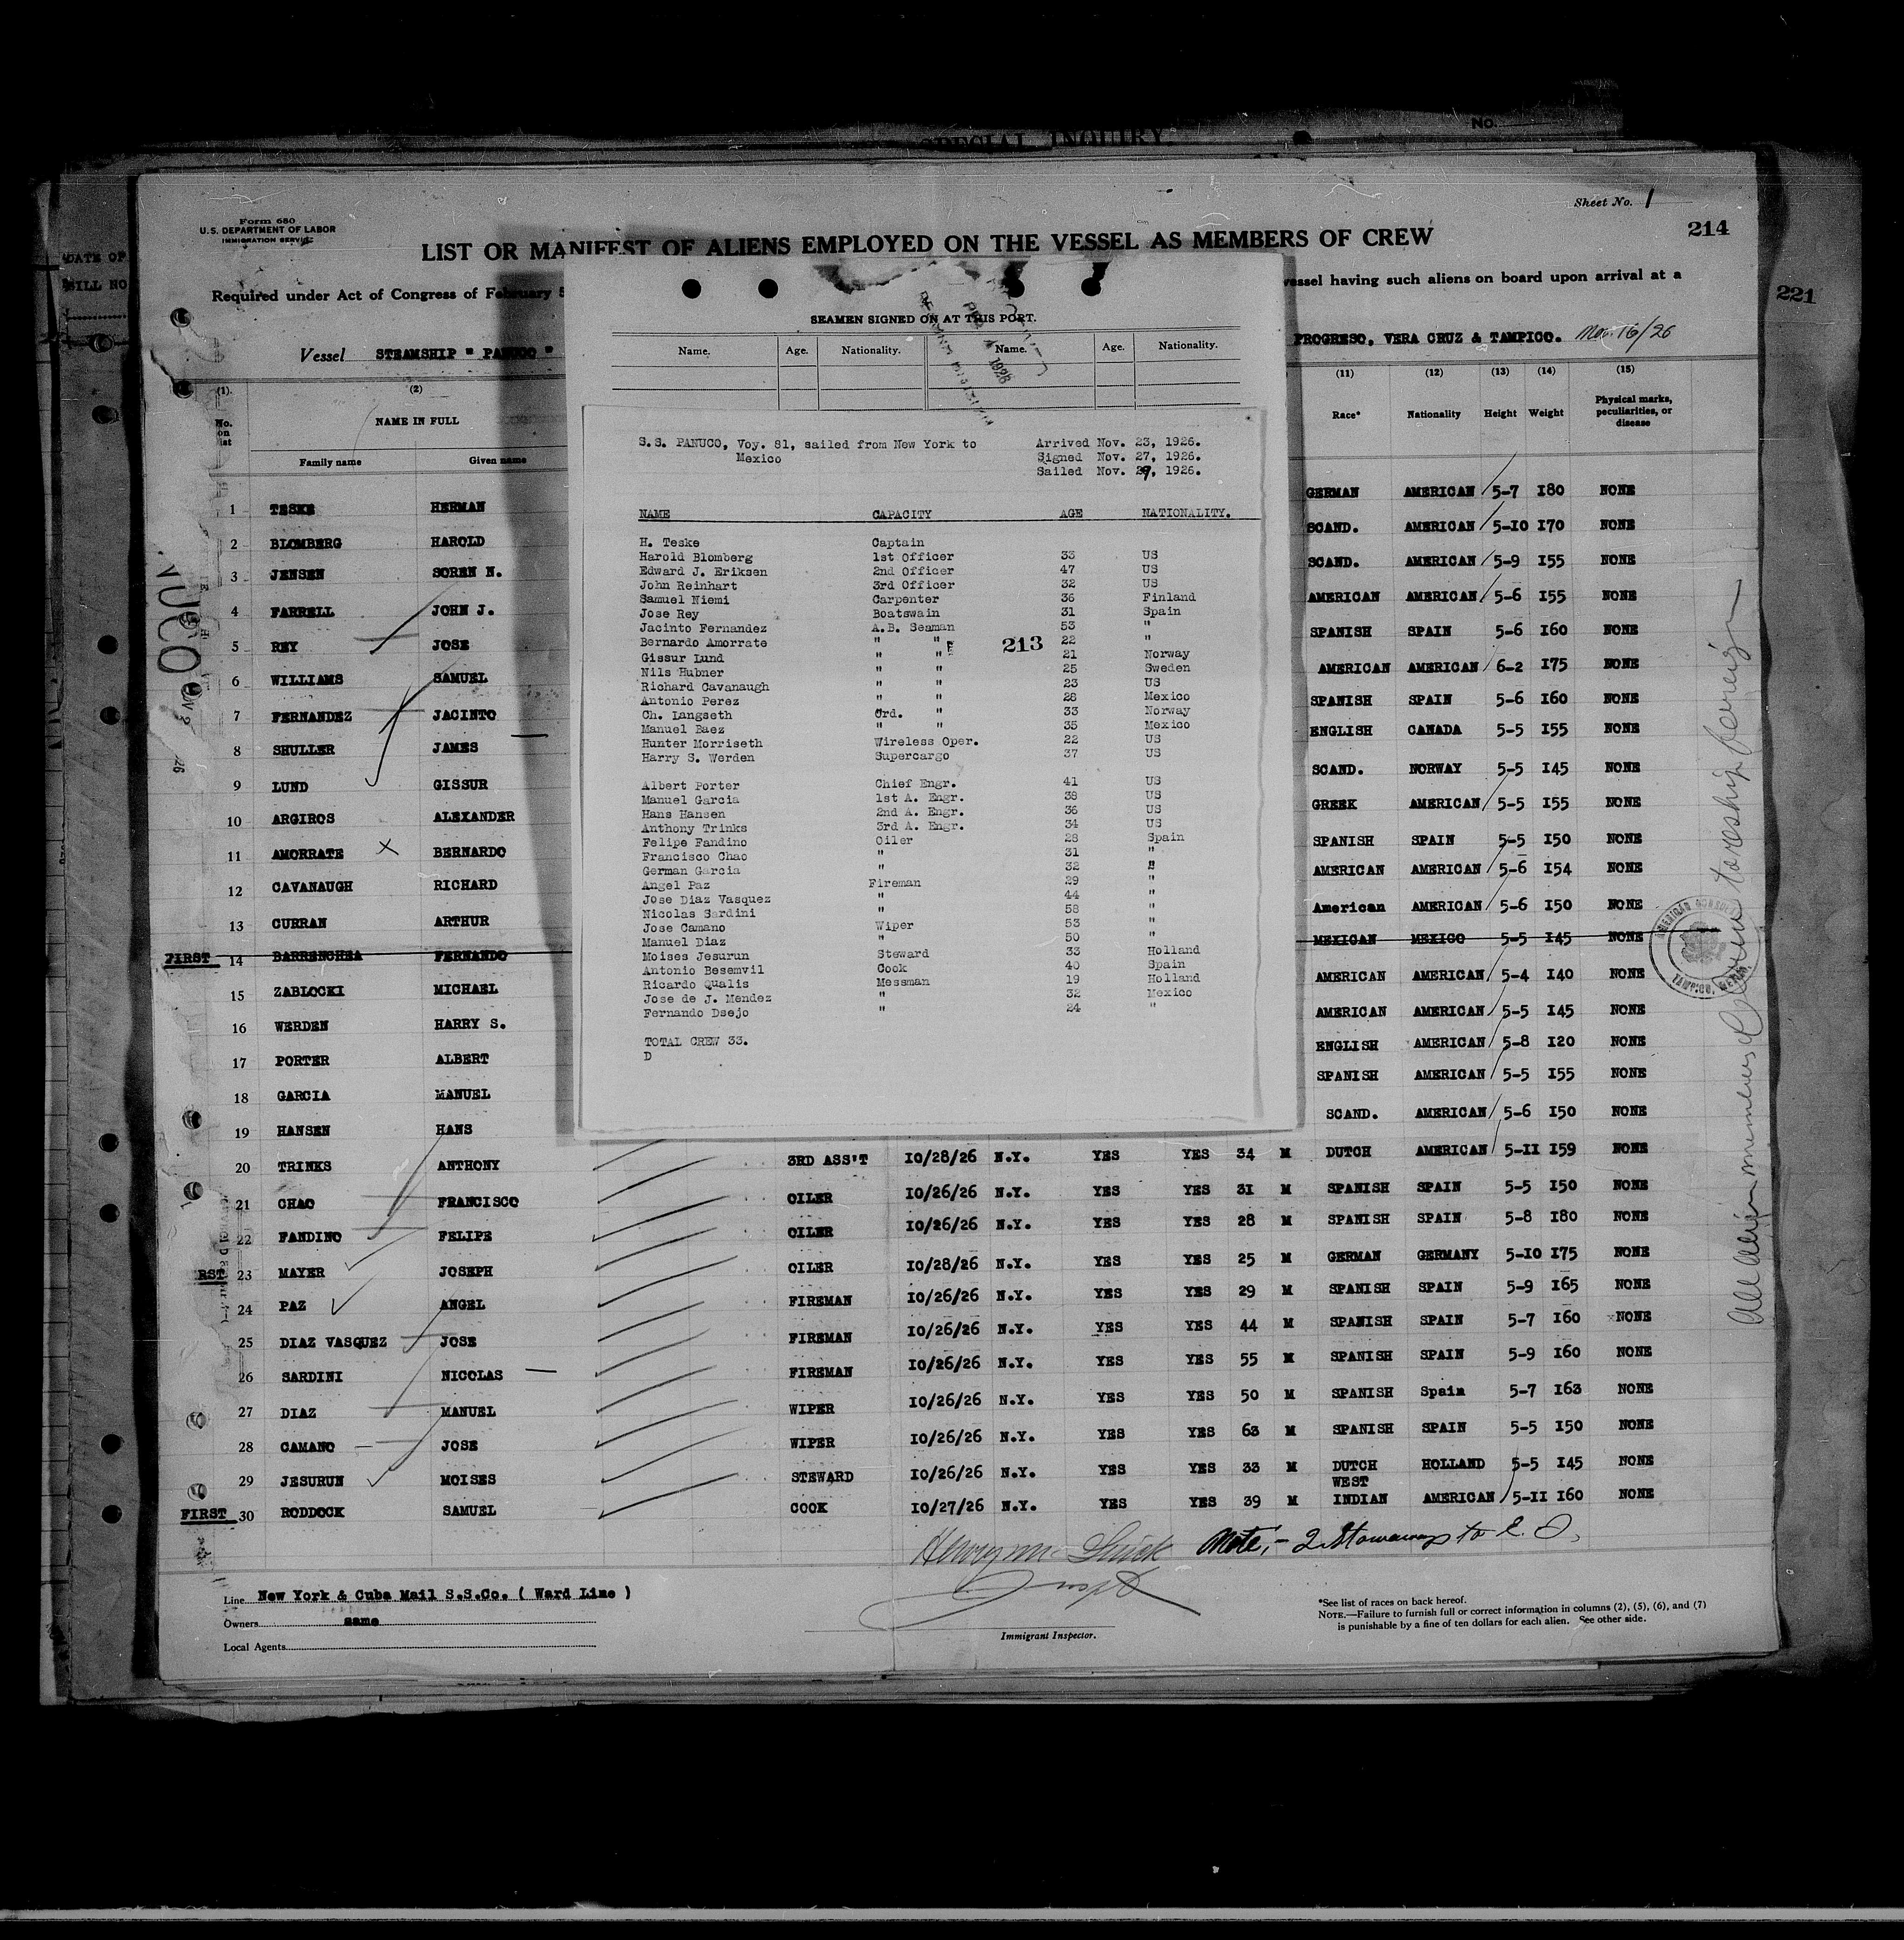 SPECIAL INQUIRY.
No.
Sheet No. 1
214
221
Form 680
U.S. DEPARTMENT OF LABOR
IMMIGRATION SERVICE
LIST OR MANIFEST OF ALIENS EMPLOYED ON THE VESSEL AS MEMBERS OF CREW
Required under Act of Congress of February 5
vessel having such aliens on board upon arrival at a
Vessel STEAMSHIP " PANUCO "
PROGRESO, VERA CRUZ & TAMPICO. Nov. 16/26
DATE OF
BILL NO
(1) (2) (11) (12) (13) (14) (15)
No. on list NAME IN FULL Race* Nationality Height Weight Physical marks, peculiarities, or disease
Family name Given name
1 TESKE HERMAN GERMAN AMERICAN 5-7 180 NONE
2 BLOMBERG HAROLD SCAND. AMERICAN 5-10 170 NONE
3 JENSEN SOREN N. SCAND. AMERICAN 5-9 155 NONE
4 FARRELL JOHN J. AMERICAN AMERICAN 5-6 155 NONE
5 REY JOSE SPANISH SPAIN 5-6 160 NONE
6 WILLIAMS SAMUEL AMERICAN AMERICAN 6-2 175 NONE
7 FERNANDEZ JACINTO SPANISH SPAIN 5-6 160 NONE
8 SHULLER JAMES ENGLISH CANADA 5-5 155 NONE
9 LUND GISSUR SCAND. NORWAY 5-5 145 NONE
10 ARGIROS ALEXANDER GREEK AMERICAN 5-5 155 NONE
11 AMORRATE X BERNARDO SPANISH SPAIN 5-5 150 NONE
12 CAVANAUGH RICHARD AMERICAN AMERICAN 5-6 154 NONE
13 CURRAN ARTHUR American AMERICAN 5-6 150 NONE
FIRST 14 BARRENCHEA FERNANDO MEXICAN MEXICO 5-5 145 NONE
15 ZABLOCKI MICHAEL AMERICAN AMERICAN 5-4 140 NONE
16 WERDEN HARRY S. AMERICAN AMERICAN 5-5 145 NONE
17 PORTER ALBERT ENGLISH AMERICAN 5-8 120 NONE
18 GARCIA MANUEL SPANISH AMERICAN 5-5 155 NONE
19 HANSEN HANS SCAND. AMERICAN 5-6 150 NONE
20 TRINKS ANTHONY 3RD ASS'T 10/28/26 N.Y. YES YES 34 M DUTCH AMERICAN 5-11 159 NONE
21 CHAO FRANCISCO OILER 10/26/26 N.Y. YES YES 31 M SPANISH SPAIN 5-5 150 NONE
22 FANDINO FELIPE OILER 10/26/26 N.Y. YES YES 28 M SPANISH SPAIN 5-8 180 NONE
RST 23 MAYER JOSEPH OILER 10/28/26 N.Y. YES YES 25 M GERMAN GERMANY 5-10 175 NONE
24 PAZ ANGEL FIREMAN 10/26/26 N.Y. YES YES 29 M SPANISH SPAIN 5-9 165 NONE
25 DIAZ VASQUEZ JOSE FIREMAN 10/26/26 N.Y. YES YES 44 M SPANISH SPAIN 5-7 160 NONE
26 SARDINI NICOLAS FIREMAN 10/26/26 N.Y. YES YES 55 M SPANISH SPAIN 5-9 160 NONE
27 DIAZ MANUEL WIPER 10/26/26 N.Y. YES YES 50 M SPANISH Spain 5-7 163 NONE
28 CAMANO JOSE WIPER 10/26/26 N.Y. YES YES 63 M SPANISH SPAIN 5-5 150 NONE
29 JESURUN MOISES STEWARD 10/26/26 N.Y. YES YES 33 M DUTCH HOLLAND 5-5 145 NONE
FIRST 30 RODDOCK SAMUEL COOK 10/27/26 N.Y. YES YES 39 M WEST INDIAN AMERICAN 5-11 160 NONE
Note,- 2 Stowaways to
Line New York & Cuba Mail S.S.Co. ( Ward Line )
Owners same
Local Agents
Immigrant Inspector.
*See list of races on back hereof.
NOTE.—Failure to furnish full or correct information in columns (2), (5), (6), and (7)
is punishable by a fine of ten dollars for each alien. See other side.
AMERICAN CONSULATE
TAMPICO, MEXICO
SEAMEN SIGNED ON AT THIS PORT.
Name. Age. Nationality. Name. Age. Nationality.
1926
S.S. PANUCO, Voy. 81, sailed from New York to
Mexico
Arrived Nov. 23, 1926.
Signed Nov. 27, 1926.
Sailed Nov. 29, 1926.
NAME CAPACITY AGE NATIONALITY.
H. Teske Captain
Harold Blomberg 1st Officer 33 US
Edward J. Eriksen 2nd Officer 47 US
John Reinhart 3rd Officer 32 US
Samuel Niemi Carpenter 36 Finland
Jose Rey Boatswain 31 Spain
Jacinto Fernandez A.B. Seaman 53 "
Bernardo Amorrate " " 22 "
213
Gissur Lund " " 21 Norway
Nils Hubner " " 25 Sweden
Richard Cavanaugh " " 23 US
Antonio Perez " " 28 Mexico
Ch. Langseth Ord. " 33 Norway
Manuel Baez " " 35 Mexico
Hunter Morriseth Wireless Oper. 22 US
Harry S. Werden Supercargo 37 US
Albert Porter Chief Engr. 41 US
Manuel Garcia 1st A. Engr. 38 US
Hans Hansen 2nd A. Engr. 36 US
Anthony Trinks 3rd A. Engr. 34 US
Felipe Fandino Oiler 28 Spain
Francisco Chao " 31 "
German Garcia " 32 "
Angel Paz Fireman 29 "
Jose Diaz Vasquez " 44 "
Nicolas Sardini " 58 "
Jose Camano Wiper 53 "
Manuel Diaz " 50 "
Moises Jesurun Steward 33 Holland
Antonio Besemvil Cook 40 Spain
Ricardo Qualis Messman 19 Holland
Jose de J. Mendez " 32 Mexico
Fernando Dsejo " 24 "
TOTAL CREW 33.
D